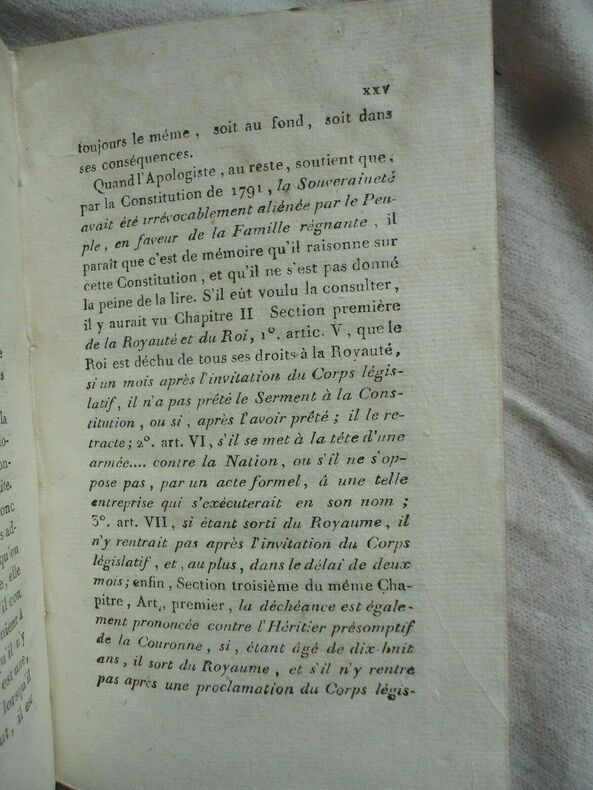 xxv
toujours le même, soit au fond, soit dans
ses conséquences.
Quand l'Apologiste, au reste, soutient que,
par la Constitution de 1791, la Souveraineté
avait été irrévocablement aliénée par le Peu-
ple, en faveur de la Famille régnante, il
paraît que c'est de mémoire qu'il raisonne sur
cette Constitution, et qu'il ne s'est pas donné
la peine de la lire. S'il eût voulu la consulter,
il y aurait vu Chapitre II Section première
de la Royauté et du Roi, 1º. artic. V, que le
Roi est déchu de tous ses droits à la Royauté,
si un mois après l'invitation du Corps légis-
latif, il n'a pas prêté le Serment à la Cons-
titution, ou si, après l'avoir prêté; il le re-
tracte; 2º. art. VI, s'il se met à la tête d'une
armée.... contre la Nation, ou s'il ne s'op-
pose pas, par un acte formel, à une telle
entreprise qui s'exécuterait en son nom;
3º. art. VII, si étant sorti du Royaume, il
n'y rentrait pas après l'invitation du Corps
législatif, et, au plus, dans le délai de deux
mois; enfin, Section troisième du même Cha-
pitre, Art,, premier, la déchéance est égale-
ment prononcée contre l'Héritier présomptif
de la Couronne, si, étant âgé de dix-huit
ans, il sort du Royaume, et s'il n'y rentre
pas après une proclamation du Corps légis-